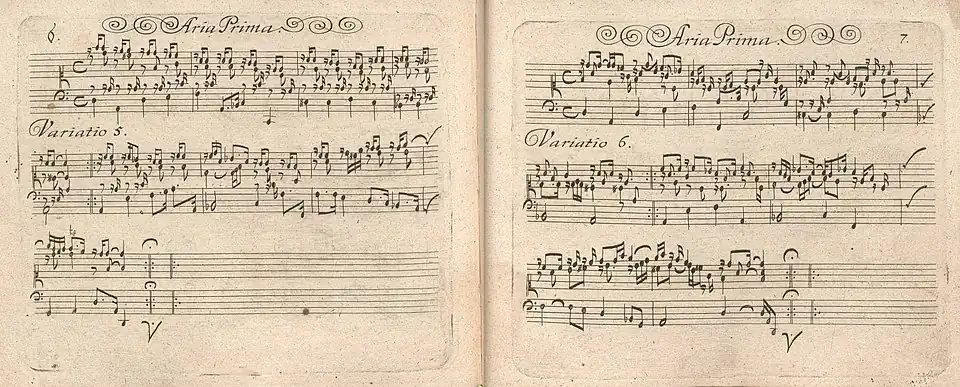 6.
Aria Prima.
Variatio 5.
Aria Prima.
7.
Variatio 6.